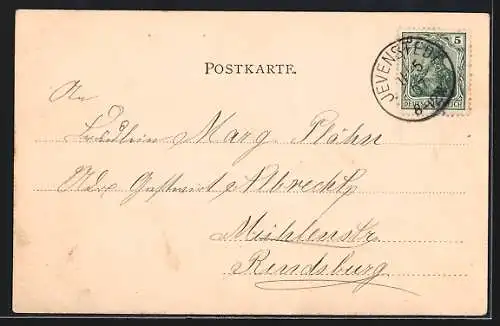 POSTKARTE.
JEVENSTEDT
5
DEUTSCHES REICH
An
Fräulein Marg. Plähn
Adr. Gastwirt Albrecht,
Mühlenstr.
Rendsburg